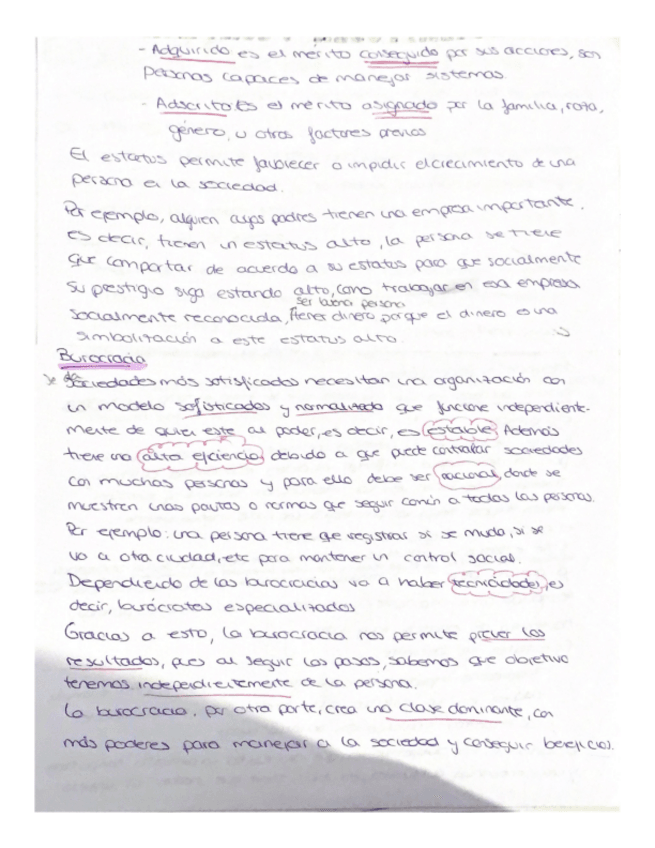 - Adquirido es el mérito conseguido por sus acciones, son
personas capaces de manejar sistemas.
- Adscrito es el mérito asignado por la familia, raza,
género, u otros factores previos
El estatus permite favorecer o impidir el crecimiento de una
persona en la sociedad.
Por ejemplo, alguien cuyos padres tienen una empresa importante.
es decir, tienen un estatus alto, la persona se tiene
que comportar de acuerdo a su estatus para que socialmente
su prestigio siga estando alto, como trabajar en esa empresa
ser buena persona
socialmente reconocida, tener dinero porque el dinero es una
simbolitación a este estatus alto.
Burocracia
Sociedades más sofisticadas necesitan una organización con
un modelo sofisticados y normalizado que funcione independiente-
mente de quien este al poder, es decir, es estable. Además
tiene una alta eficiencia, debido a que puede controlar sociedades
con muchas personas y para ello debe ser racional, donde se
muestren unas pautas o normas que seguir común a todas las personas.
Por ejemplo: una persona tiene que registrar si se muda, si se
va a otra ciudad, etc para mantener un control social.
Dependiendo de las burocracias va a haber tecnicidades, es
decir, burócratas especializados
Gracias a esto, la burocracia nos permite prever los
resultados, pues al seguir los pasos, sabemos que objetivo
tenemos independientemente de la persona.
La burocracia, por otra parte, crea una clase dominante, con
más poderes para manejar a la sociedad y conseguir beneficios.